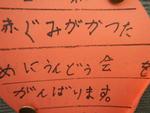 赤ぐみがかつた
めにうんどう会を
がんばります。